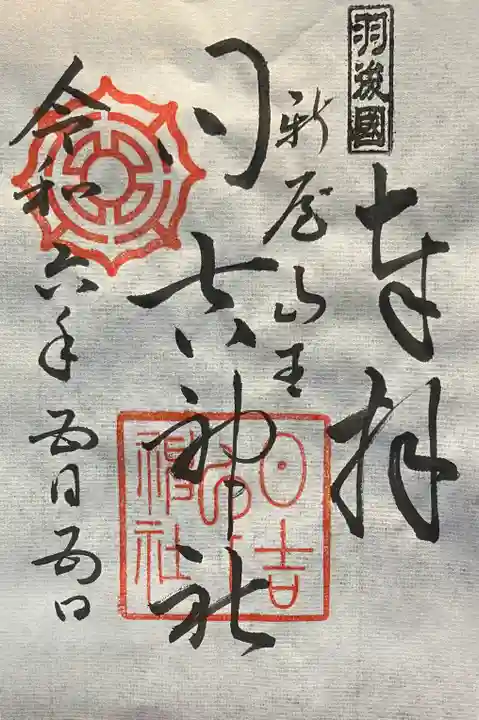 羽後國
奉拝
新屋山王
日吉神社
令和六年
日吉
神社